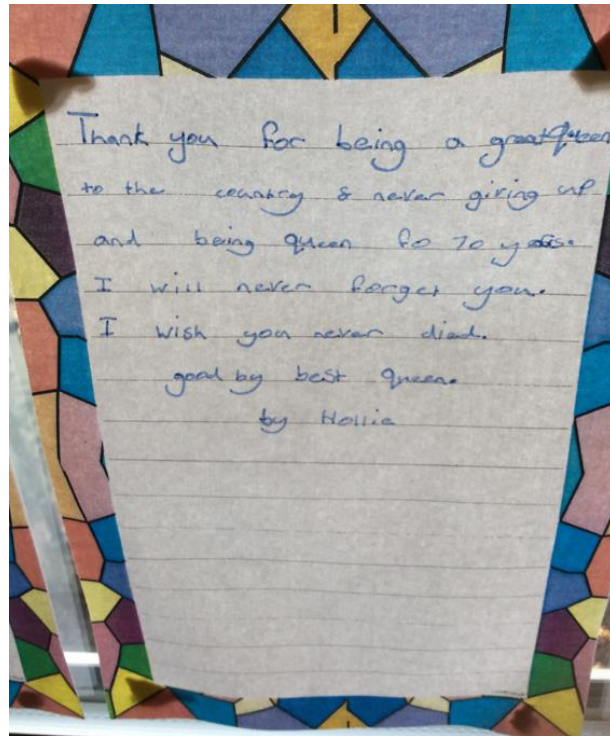 Thank you for being a great queen
to the country & never giving up
and being queen fo 70 years.
I will never forget you.
I wish you never died.
good by best queen.
by Hollie